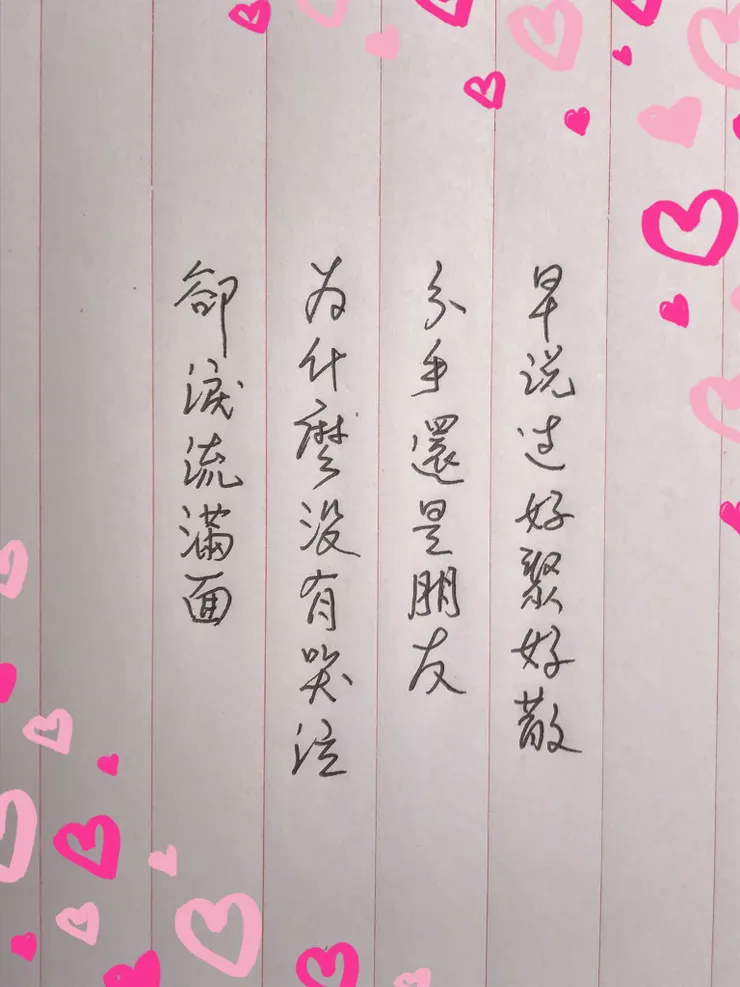 早说过好聚好散
分手還是朋友
为什麽没有哭泣
卻淚流满面